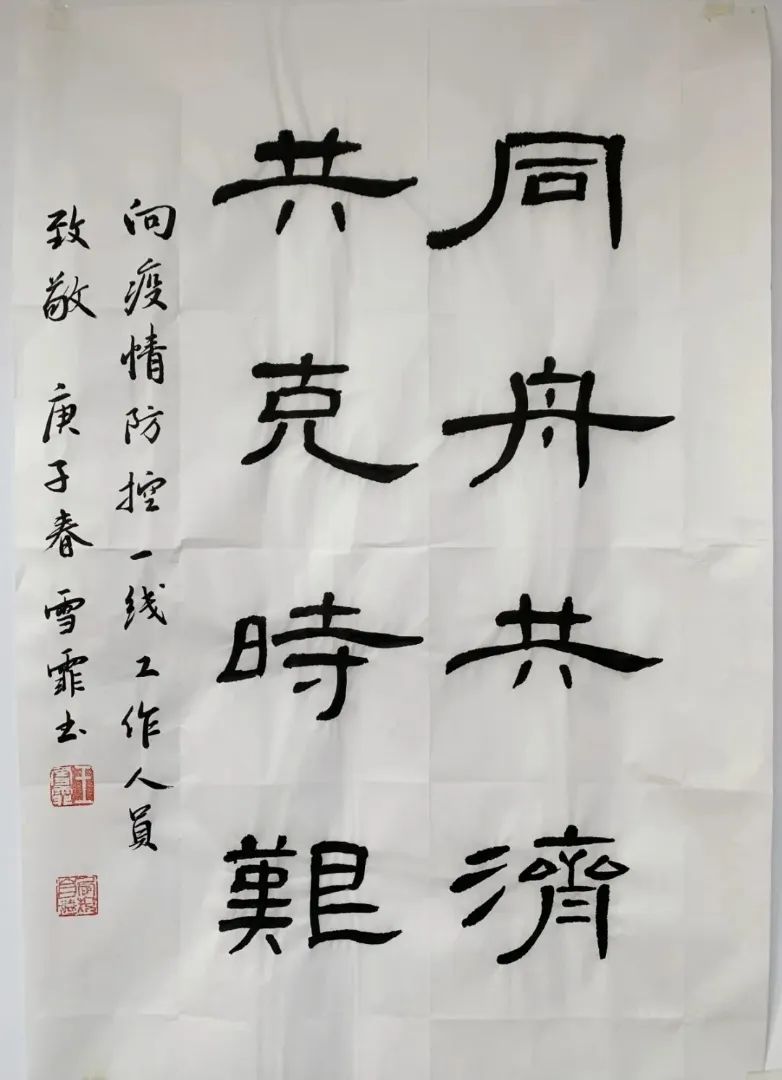 同舟共濟
共克時艱
向疫情防控一线工作人員
致敬 庚子春 雪霏书